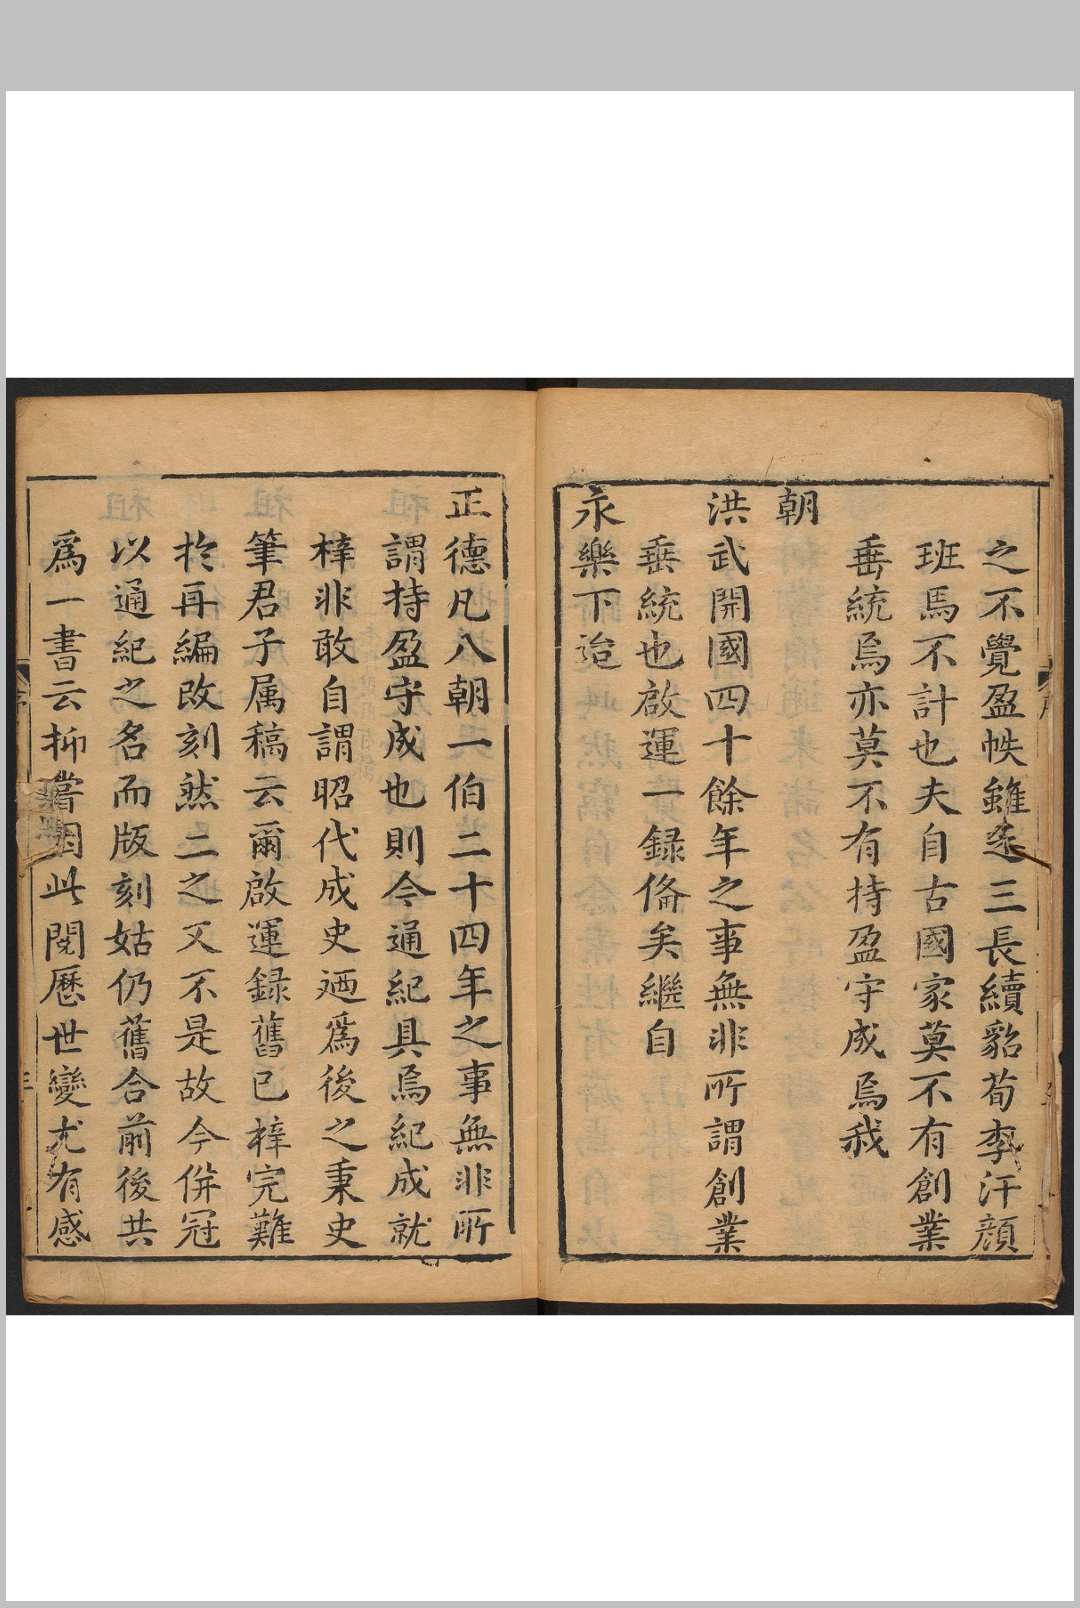 之不覺盈帙雖迄三長續貂荀李汗顔
班馬不計也夫自古國家莫不有創業
垂統焉亦莫不有持盈守成焉我
朝
洪武開國四十餘年之事無非所謂創業
垂統也啟運一録俻矣繼自
永樂下迨
正德凡八朝一伯二十四年之事無非所
謂持盈守成也則今通紀具焉紀成就
梓非敢自謂昭代成史廼爲後之秉史
筆君子属稿云爾啟運録舊已梓完難
扵再編改刻然二之又不是故今倂冠
以通紀之名而版刻姑仍舊合前後共
爲一書云抑嘗因此閱歷世變尤有感